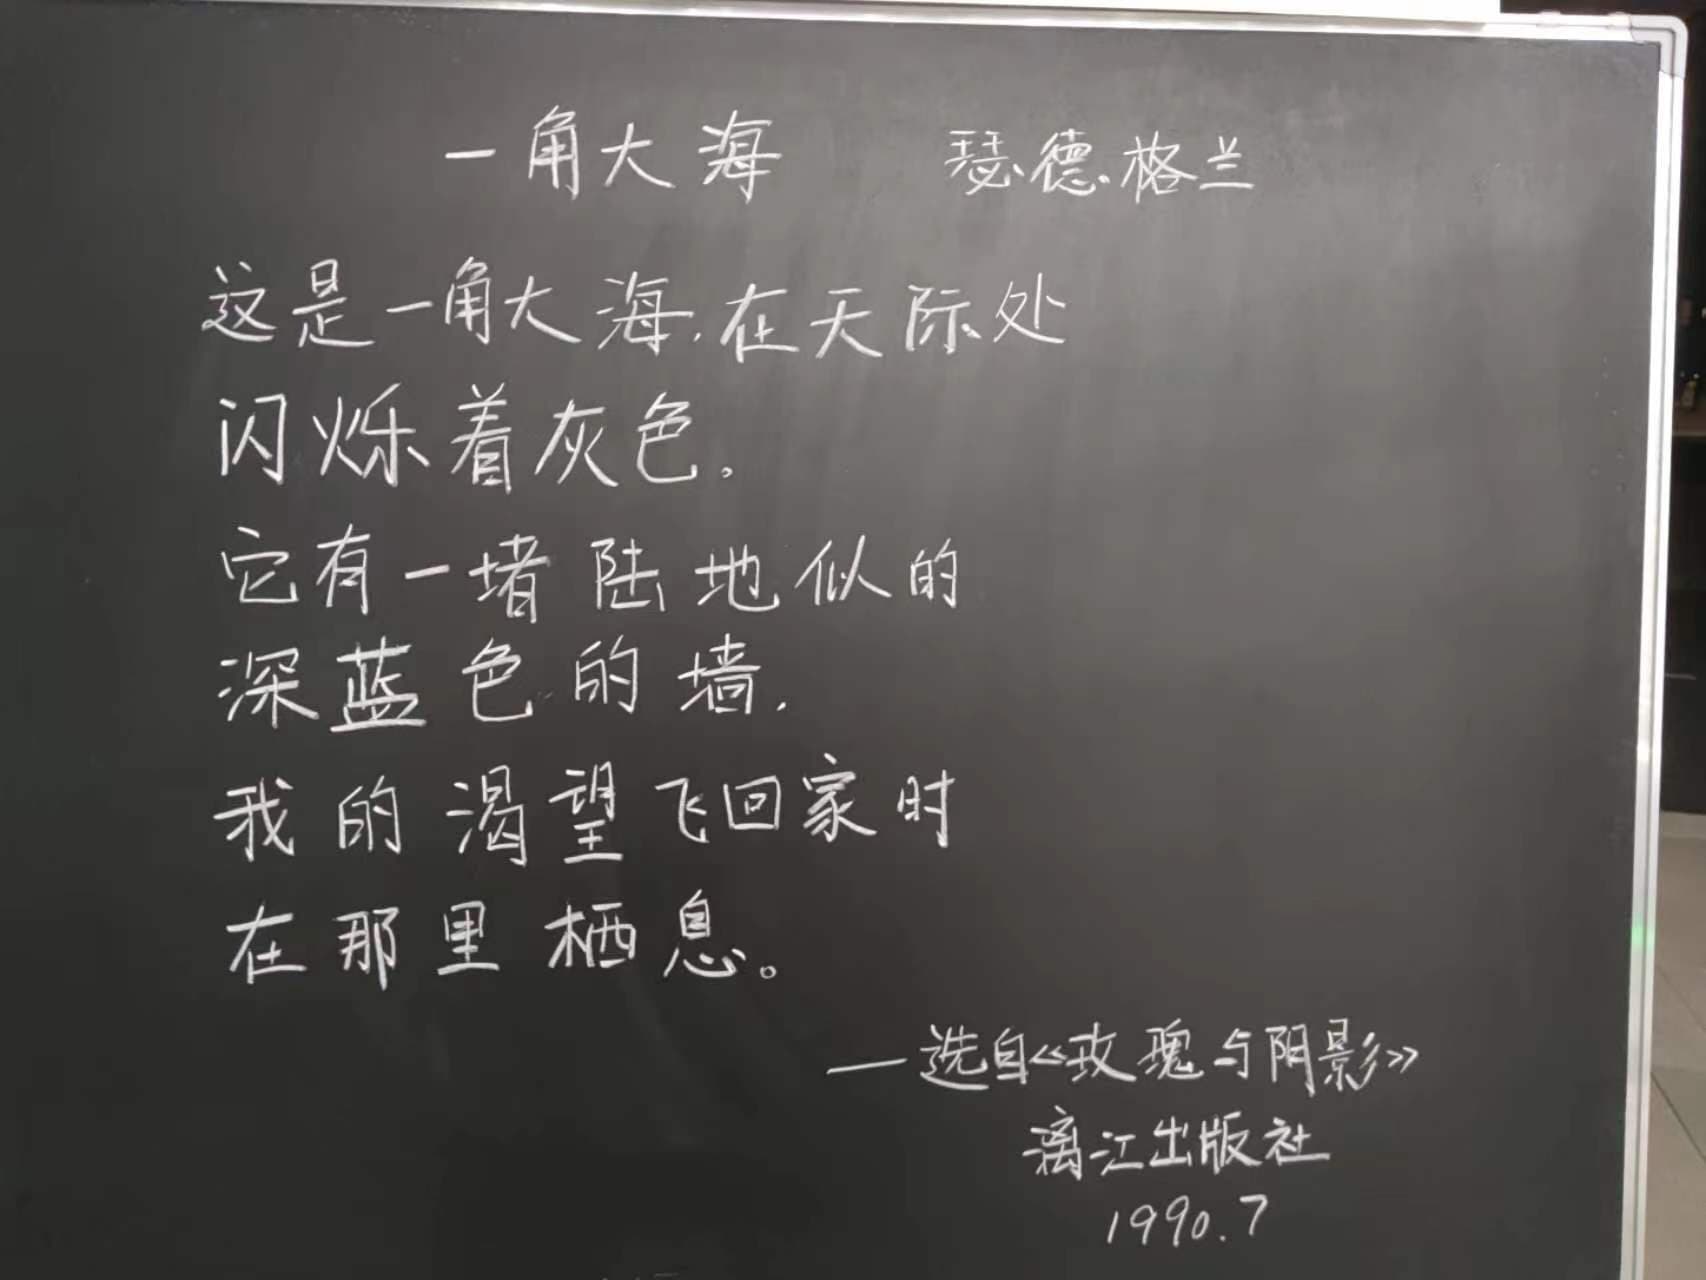 一角大海 瑟德格兰
这是一角大海,在天际处
闪烁着灰色。
它有一堵陆地似的
深蓝色的墙,
我的渴望飞回家时
在那里栖息。
—选自《玫瑰与阴影》
漓江出版社
1990.7